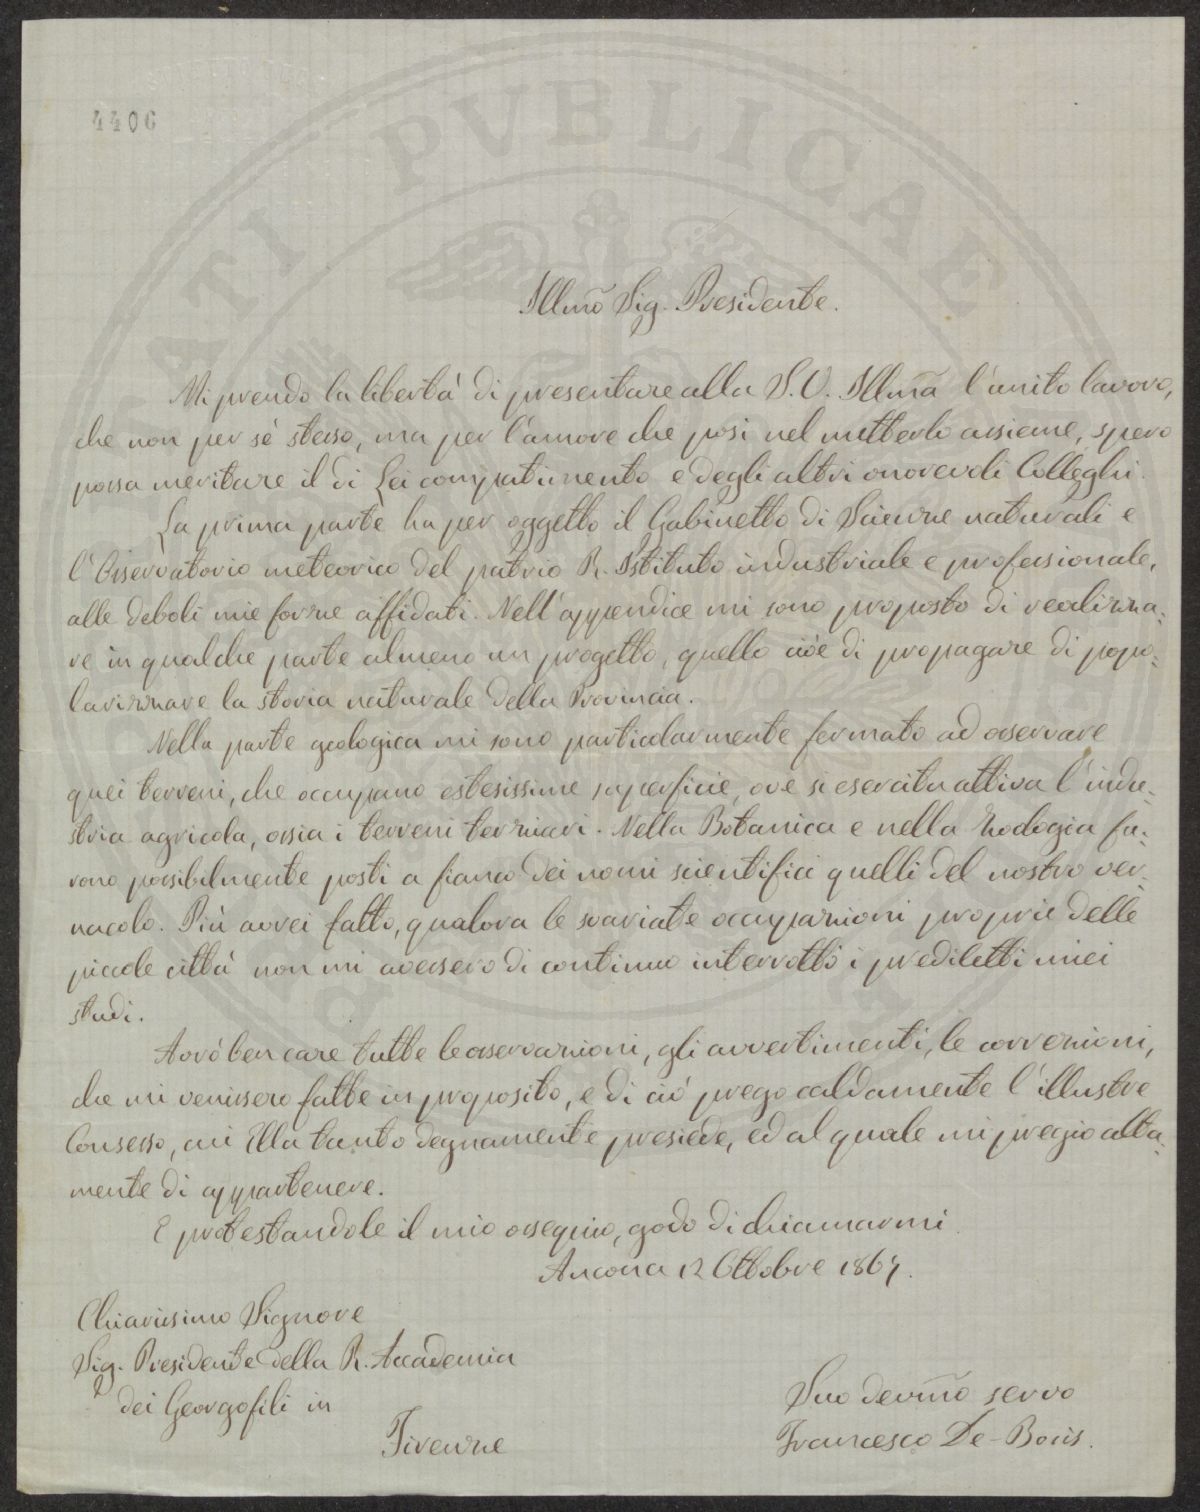 4406
PVBLICAE
Illmo Sig. Presidente.
Mi prendo la libertà di presentare alla S. V. Illma l'unito lavoro,
che non per sè stesso, ma per l'amore che posi nel metterlo assieme, spero
possa meritare il di Lei compatimento e degli altri onorevoli Colleghi.
La prima parte ha per oggetto il Gabinetto di Scienze naturali e
l'Osservatorio meteorico del patrio R. Istituto industriale e professionale,
alle deboli mie forze affidati. Nell'appendice mi sono proposto di realizza-
re in qualche parte almeno un progetto, quello cioè di propagare di popo-
larizzare la storia naturale della Provincia.
Nella parte geologica mi sono particolarmente fermato ad osservare
quei terreni, che occupano estesissime superficie, ove si esercita attiva l'indu-
stria agricola, ossia i terreni terziari. Nella Botanica e nella Zoologia fu-
rono possibilmente posti a fianco dei nomi scientifici quelli del nostro ver-
nacolo. Più avrei fatto, qualora le svariate occupazioni proprie delle
piccole città non mi avessero di continuo interrotto i prediletti miei
studi.
Avrò ben care tutte le osservazioni, gli avvertimenti, le correzioni,
che mi venissero fatte in proposito, e di ciò prego caldamente l'illustre
Consesso, cui Ella tanto degnamente presiede, ed al quale mi pregio alta-
mente di appartenere.
E protestandole il mio ossequio, godo di chiamarmi
Ancona 12 Ottobre 1867.
Chiarissimo Signore
Sig. Presidente della R. Accademia
dei Georgofili in
Firenze
Suo devmo servo
Francesco De-Bosis.